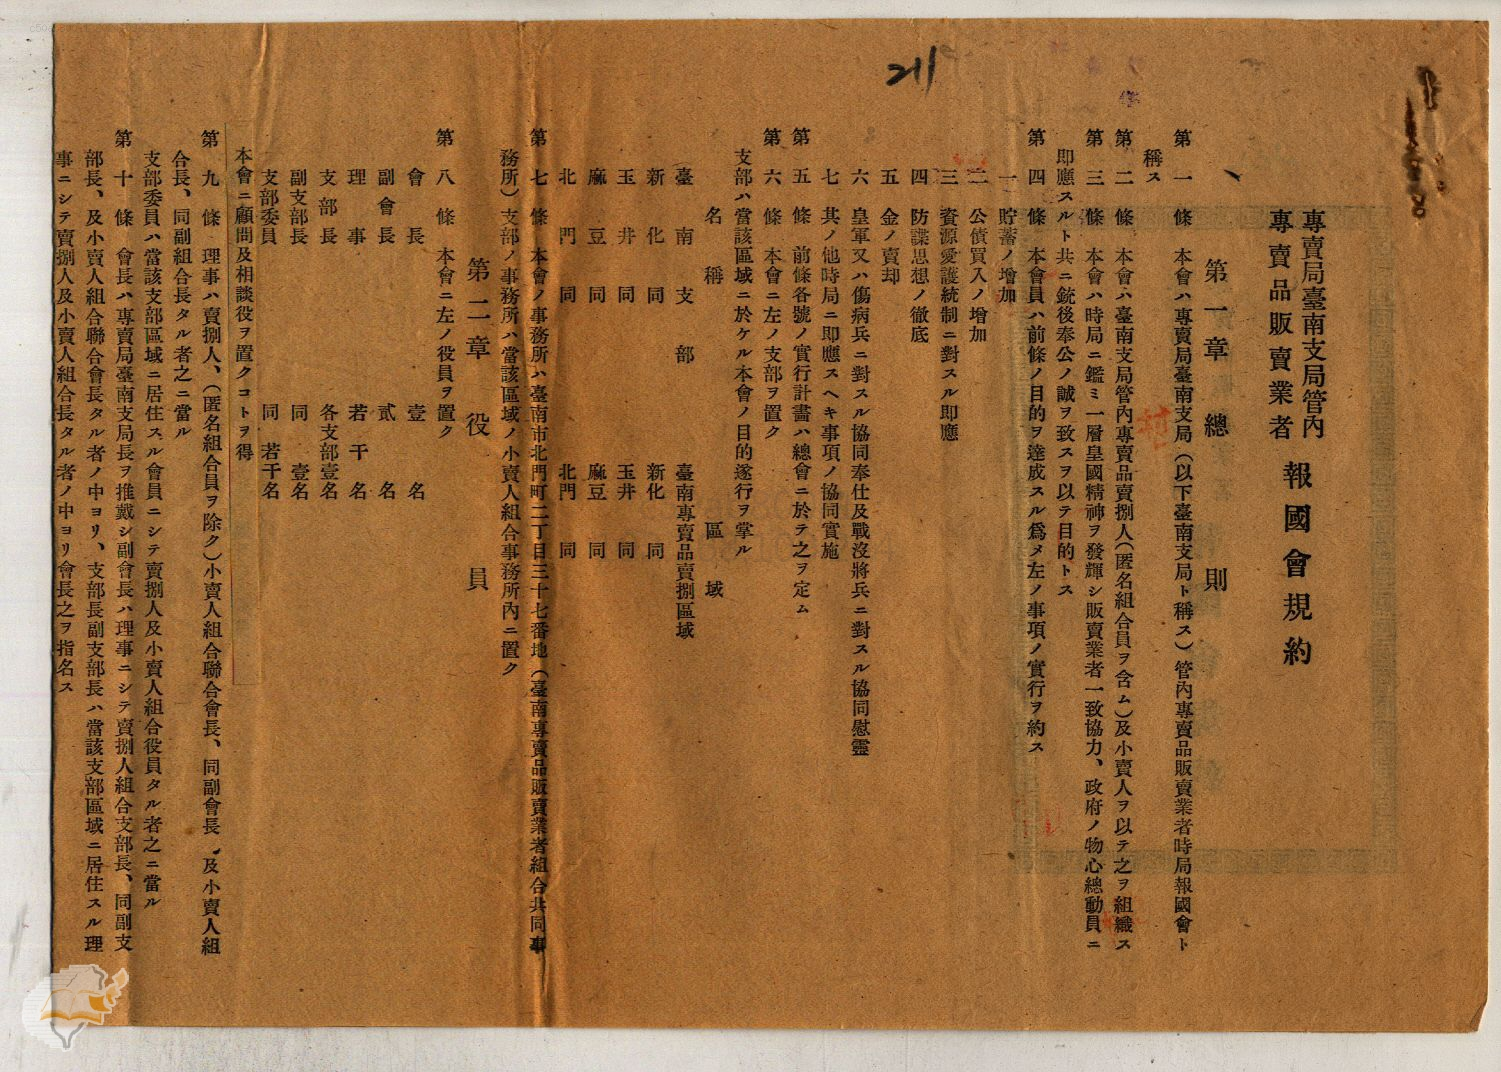 211
專賣局臺南支局管內
專賣品販賣業者
報國會規約
第一章 總則
第一條 本會ハ專賣局臺南支局（以下臺南支局ト稱ス）管內專賣品販賣業者時局報國會ト
稱ス
第二條 本會ハ臺南支局管內專賣品賣捌人（匿名組合員ヲ含ム）及小賣人ヲ以テ之ヲ組織ス
第三條 本會ハ時局ニ鑑ミ一層皇國精神ヲ發輝シ販賣業者一致協力、政府ノ物心總動員ニ
即應スルト共ニ銃後奉公ノ誠ヲ致スヲ以テ目的トス
第四條 本會員ハ前條ノ目的ヲ達成スル爲メ左ノ事項ノ實行ヲ約ス
一 貯蓄ノ增加
二 公債買入ノ增加
三 資源愛護統制ニ對スル即應
四 防諜思想ノ徹底
五 金ノ賣却
六 皇軍又ハ傷病兵ニ對スル協同奉仕及戰沒將兵ニ對スル協同慰靈
七 其ノ他時局ニ即應スヘキ事項ノ協同實施
第五條 前條各號ノ實行計畫ハ總會ニ於テ之ヲ定ム
第六條 本會ニ左ノ支部ヲ置ク
支部ハ當該區域ニ於ケル本會ノ目的遂行ヲ掌ル
名稱 區域
臺南支部 臺南專賣品賣捌區域
新化同 新化同
玉井同 玉井同
麻豆同 麻豆同
北門同 北門同
第七條 本會ノ事務所ハ臺南市北門町二丁目三十七番地（臺南專賣品販賣業者組合共同事
務所）支部ノ事務所ハ當該區域ノ小賣人組合事務所內ニ置ク
第二章 役員
第八條 本會ニ左ノ役員ヲ置ク
會長 壹名
副會長 貳名
理事 若干名
支部長 各支部壹名
副支部長 同 壹名
支部委員 同 若干名
本會ニ顧問及相談役ヲ置クコトヲ得
第九條 理事ハ賣捌人、（匿名組合員ヲ除ク）小賣人組合聯合會長、同副會長、及小賣人組
合長、同副組合長タル者之ニ當ル
支部委員ハ當該支部區域ニ居住スル會員ニシテ賣捌人及小賣人組合役員タル者之ニ當ル
第十條 會長ハ專賣局臺南支局長ヲ推戴シ副會長ハ理事ニシテ賣捌人組合支部長、同副支
部長、及小賣人組合聯合會長タル者ノ中ヨリ、支部長副支部長ハ當該支部區域ニ居住スル理
事ニシテ賣捌人及小賣人組合長タル者ノ中ヨリ會長之ヲ指名ス